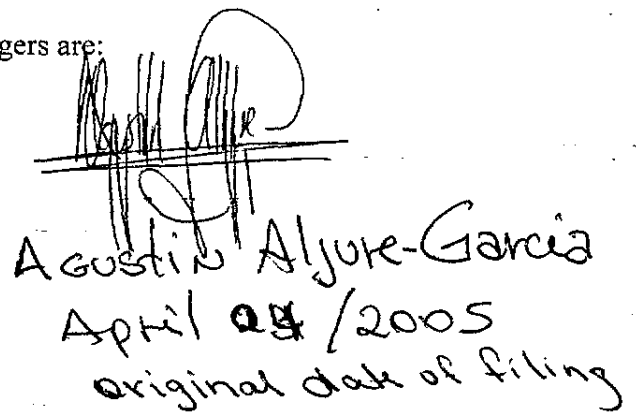 gers are:
Agustin Aljure-Garcia
April /2005
original date of filing